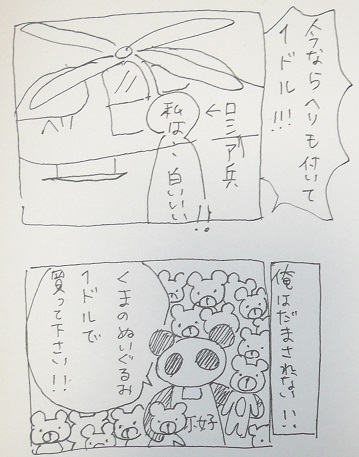 今ならヘリも付いて
1ドル!!!
←ロシア兵
私は、、白いいい!!
ヘリ
俺はだまされない!!
くまのぬいぐるみ
1ドルで
買って下さい!!